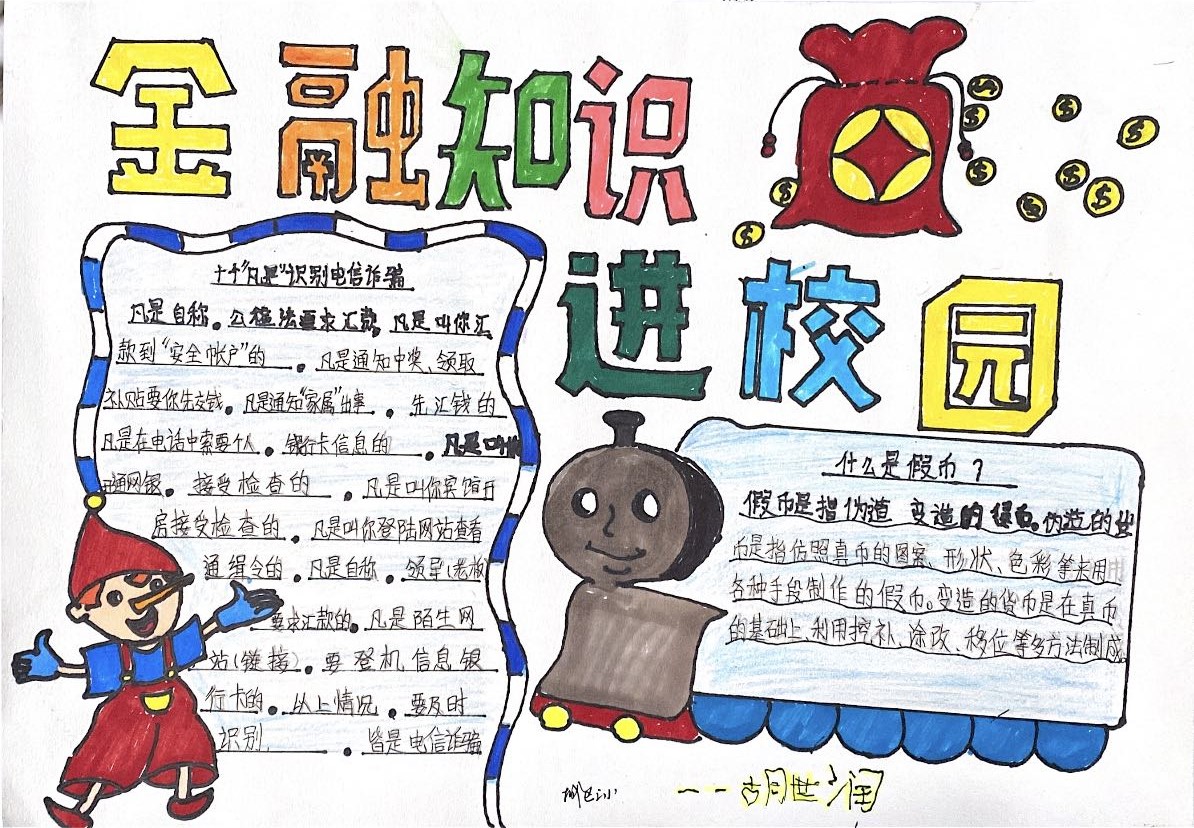 金融知识
进校园
十个"凡是"识别电信诈骗
凡是自称。公检法要求汇款。凡是叫你汇
款到"安全帐户"的。凡是通知中奖、领取
补贴要你先交钱。凡是通知"家属"出事。先汇钱的
凡是在电话中索要个人。银行卡信息的。凡是叫你
通网银。接受检查的。凡是叫你宾馆开
房接受检查的。凡是叫你登陆网站查看
通缉令的。凡是自称。领导(老板
要求汇款的。凡是陌生网
站(链接)。要登机信息银
行卡的。以上情况。要及时
识别。皆是电信诈骗
什么是假币？
假币是指伪造 变造的 币。伪造的货
币是指仿照真币的图案、形状、色彩等采用
各种手段制作的假币。变造的货币是在真币
的基础上,利用挖补、涂改、移位等多方法制成
——胡世润